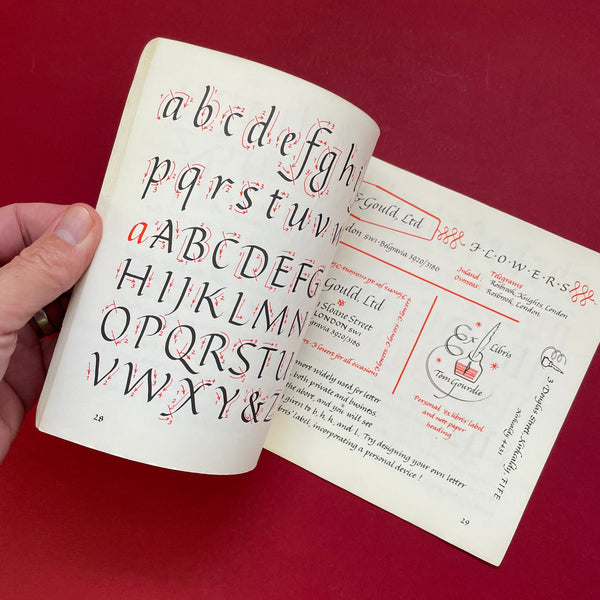 abcdefgh
pqrstuvw
aABCDEFG
HIJKLMN
OPQRSTU
VWXYZ&
28
& Gould, Ltd
London SW1 · Belgravia 3929/3186
F·L·O·W·E·R·S
Inland: Telegrams
Rosbrook, Knights, London
Overseas: Rosbrook, London
Gould, Ltd
Sloane Street
LONDON SW1
gravia 3929/3186
Flowers for all occasions
Ex Libris
Tom Grandie
Personal 'ex libris' label
and note paper
heading
3 Douglas Street, Kirkcaldy, FIFE
Kirkcaldy 4431
more widely used for letter
both private and business.
the above, and you will see
given to b, h, k, and l. Try designing your own letter
bris' label, incorporating a personal device!
29